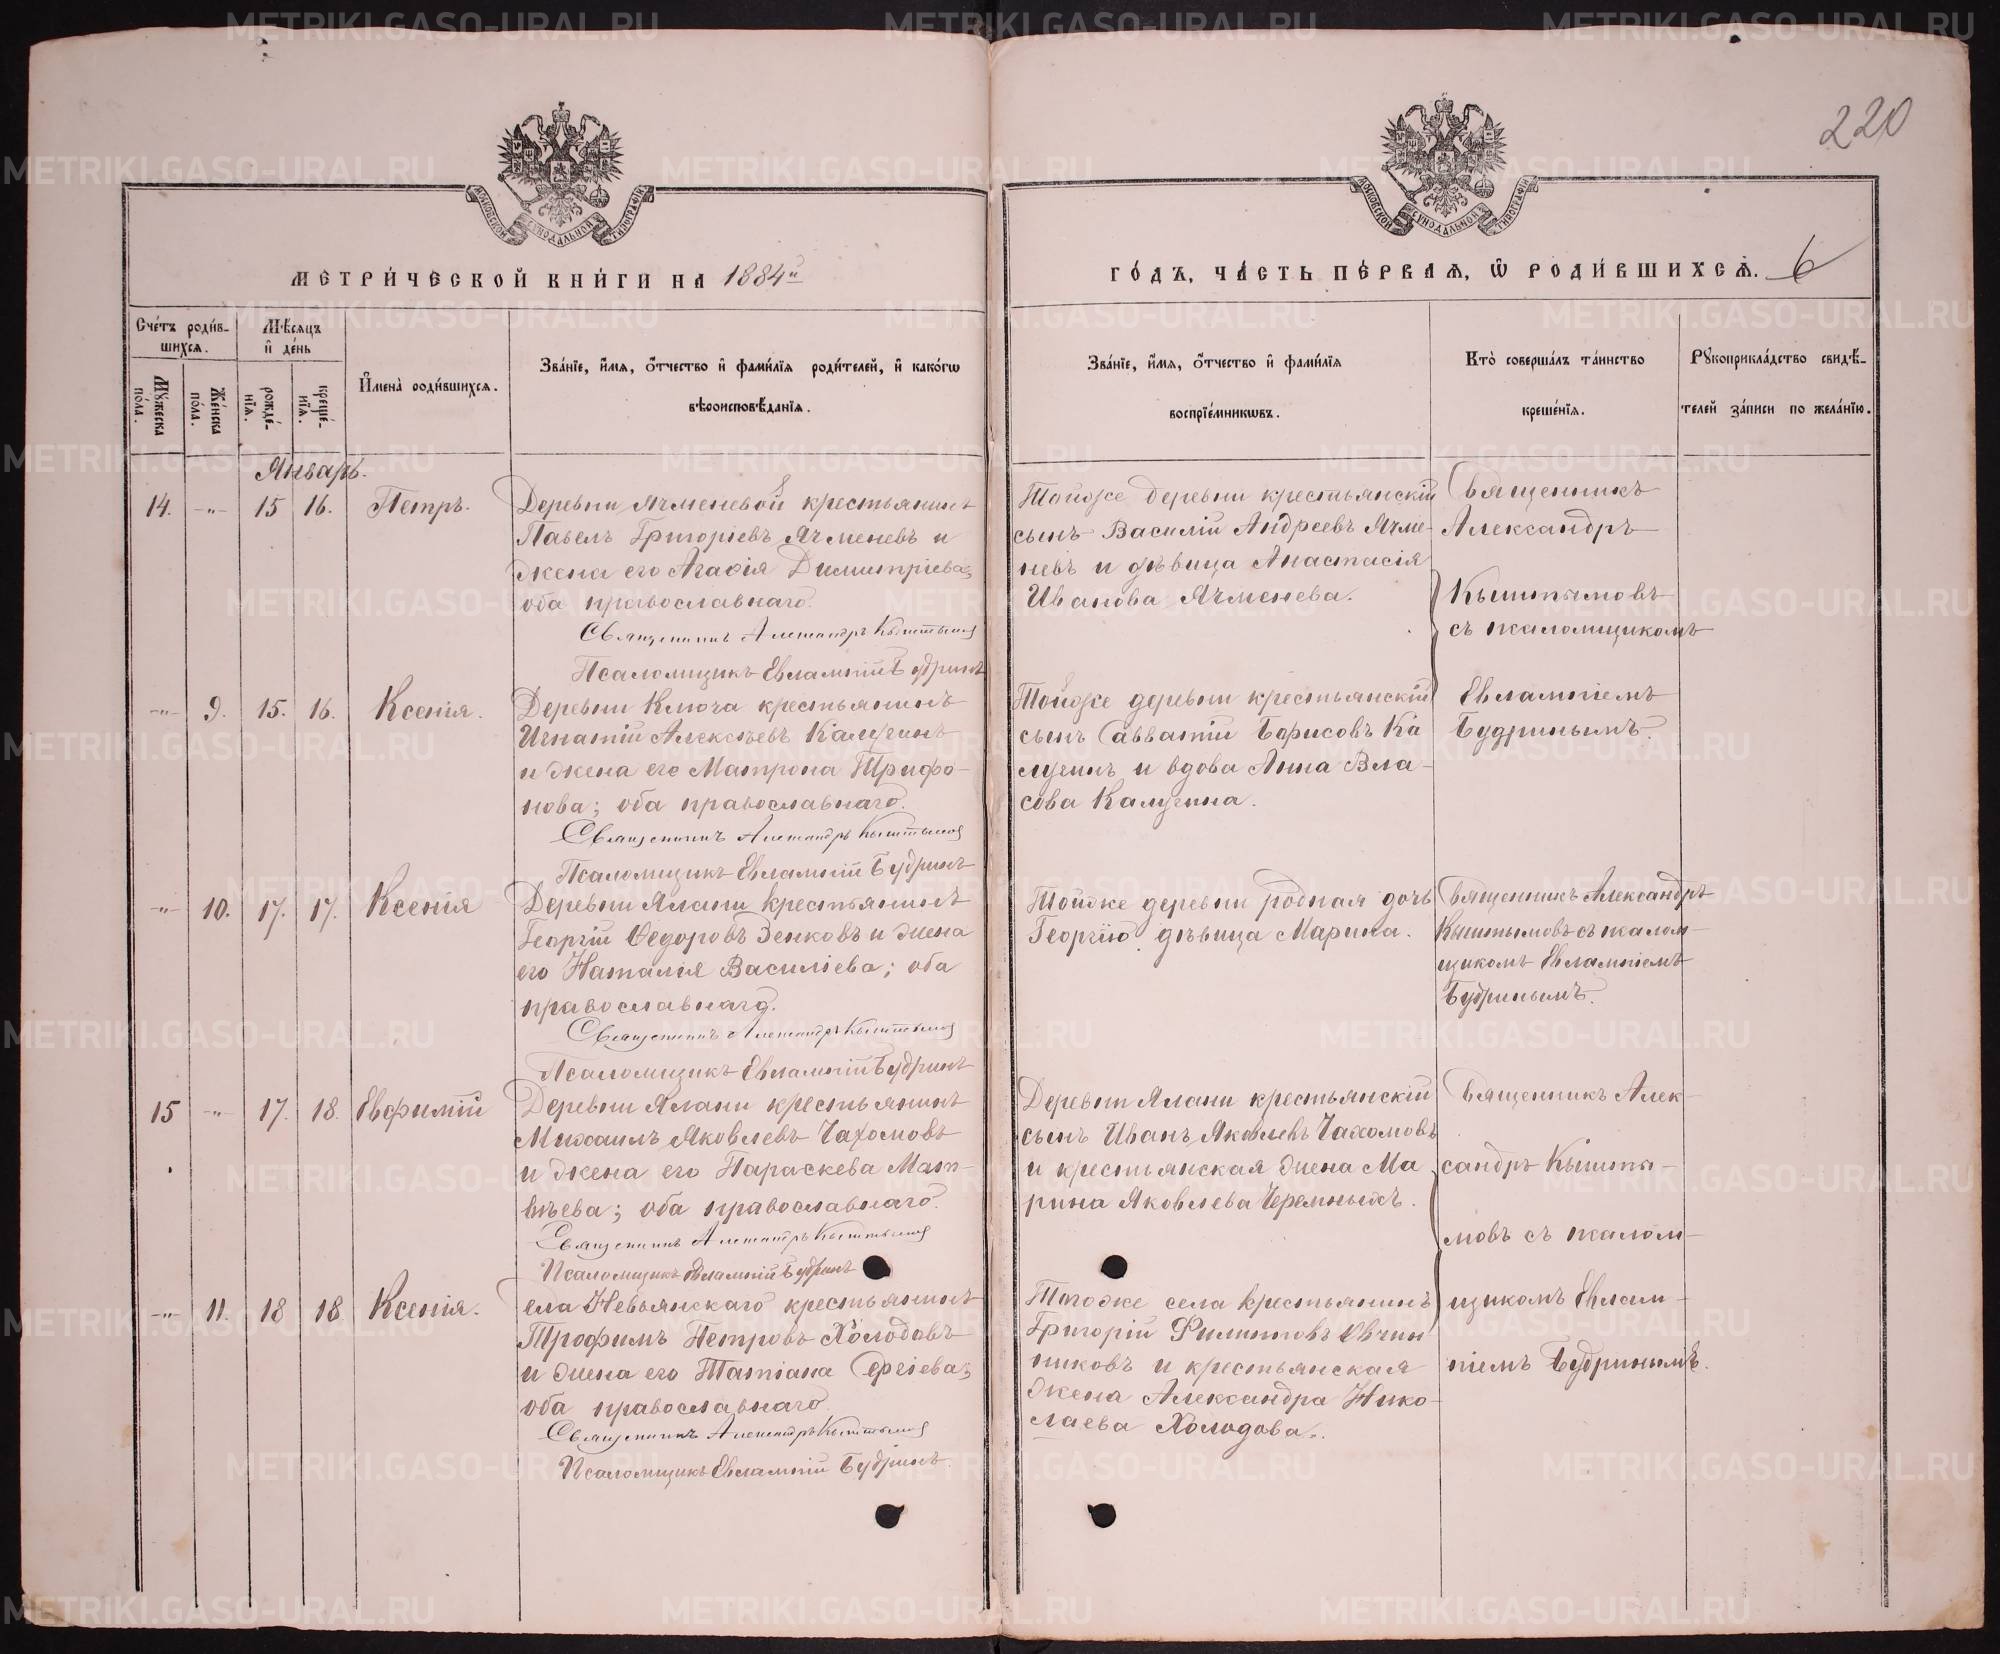 220
МОСКОВСКОЙ СѴНОДАЛЬНОЙ ТИПОГРАФІИ
МОСКОВСКОЙ СѴНОДАЛЬНОЙ ТИПОГРАФІИ
МЕТРИ́ЧЕСКОЙ КНИ́ГИ НА 1884й
ГО́ДЪ, ЧА́СТЬ ПЕ́РВАЯ, Ѿ РОДИ́ВШИХСЯ. 6
Сче́тъ роди́в-
шихся.
Мѣ́сяцъ
и де́нь
Му́жеска
по́ла.
Же́нска
по́ла.
рожде́-
нїя.
креще́-
нїя.
Имена̀ роди́вшихся.
Зва́нїе, и́мя, о́тчество и фами́лїя роди́телей, и како́гѡ
вѣроисповѣ́данїя.
Зва́нїе, и́мя, о́тчество и фами́лїя
воспрїе́мникѡвъ.
Кто̀ соверша́лъ та́инство
креще́нїя.
Рукоприкла́дство свидѣ́-
телей за́писи по жела́нїю.
Январь.
14. -"- 15 16. Петръ.
Деревни Ячменевой крестьянинъ
Павелъ Григоріевъ Ячменевъ и
жена его Агафія Димитріева;
оба православнаго.
Священникъ Александръ Кыштымов
Псаломщикъ Евлампій Будринъ
Тойже деревни крестьянскій
сынъ Василій Андреевъ Ячме-
невъ и дѣвица Анастасія
Иванова Ячменева.
Священникъ
Александръ
Кыштымовъ
съ псаломщикомъ
Евлампіемъ
Будринымъ.
-"- 9. 15. 16. Ксенія.
Деревни Ключа крестьянинъ
Игнатій Алексѣевъ Калугинъ
и жена его Матрона Трифо-
нова; оба православнаго.
Священникъ Александръ Кыштымов
Псаломщикъ Евлампій Будринъ
Тойже деревни крестьянскій
сынъ Савватій Борисовъ Ка
лугинъ и вдова Анна Вла-
сова Калугина.
-"- 10. 17. 17. Ксенія
Деревни Ялани крестьянинъ
Георгій Ѳедоровъ Зенковъ и жена
его Наталія Василіева; оба
православнаго.
Священникъ Александръ Кыштымов
Псаломщикъ Евлампій Будринъ
Тойже деревни родная дочь
Георгію дѣвица Марина.
Священникъ Александръ
Кыштымовъ съ псалом-
щикомъ Евлампіемъ
Будринымъ.
15 -"- 17. 18. Евфимій
Деревни Ялани крестьянинъ
Михаилъ Яковлевъ Пахомовъ
и жена его Параскева Мат-
вѣева; оба православнаго.
Священникъ Александръ Кыштымов
Псаломщикъ Евлампій Будринъ
Деревни Ялани крестьянскій
сынъ Иванъ Яковлевъ Пахомовъ
и крестьянская жена Ма
рина Яковлева Черемныхъ.
Священникъ Алек-
сандръ Кышты-
мовъ съ псалом-
щикомъ Евлам-
піемъ Будринымъ.
-"- 11. 18 18 Ксенія.
ела Невьянскаго крестьянинъ
Трофимъ Петровъ Холодовъ
и жена его Татіана Сергіева;
оба православнаго.
Священникъ Александръ Кыштымов
Псаломщикъ Евлампій Будринъ.
Тогоже села крестьянинъ
Григорій Филиповъ Овчин
никовъ и крестьянская
жена Александра Нико-
лаева Холодова.